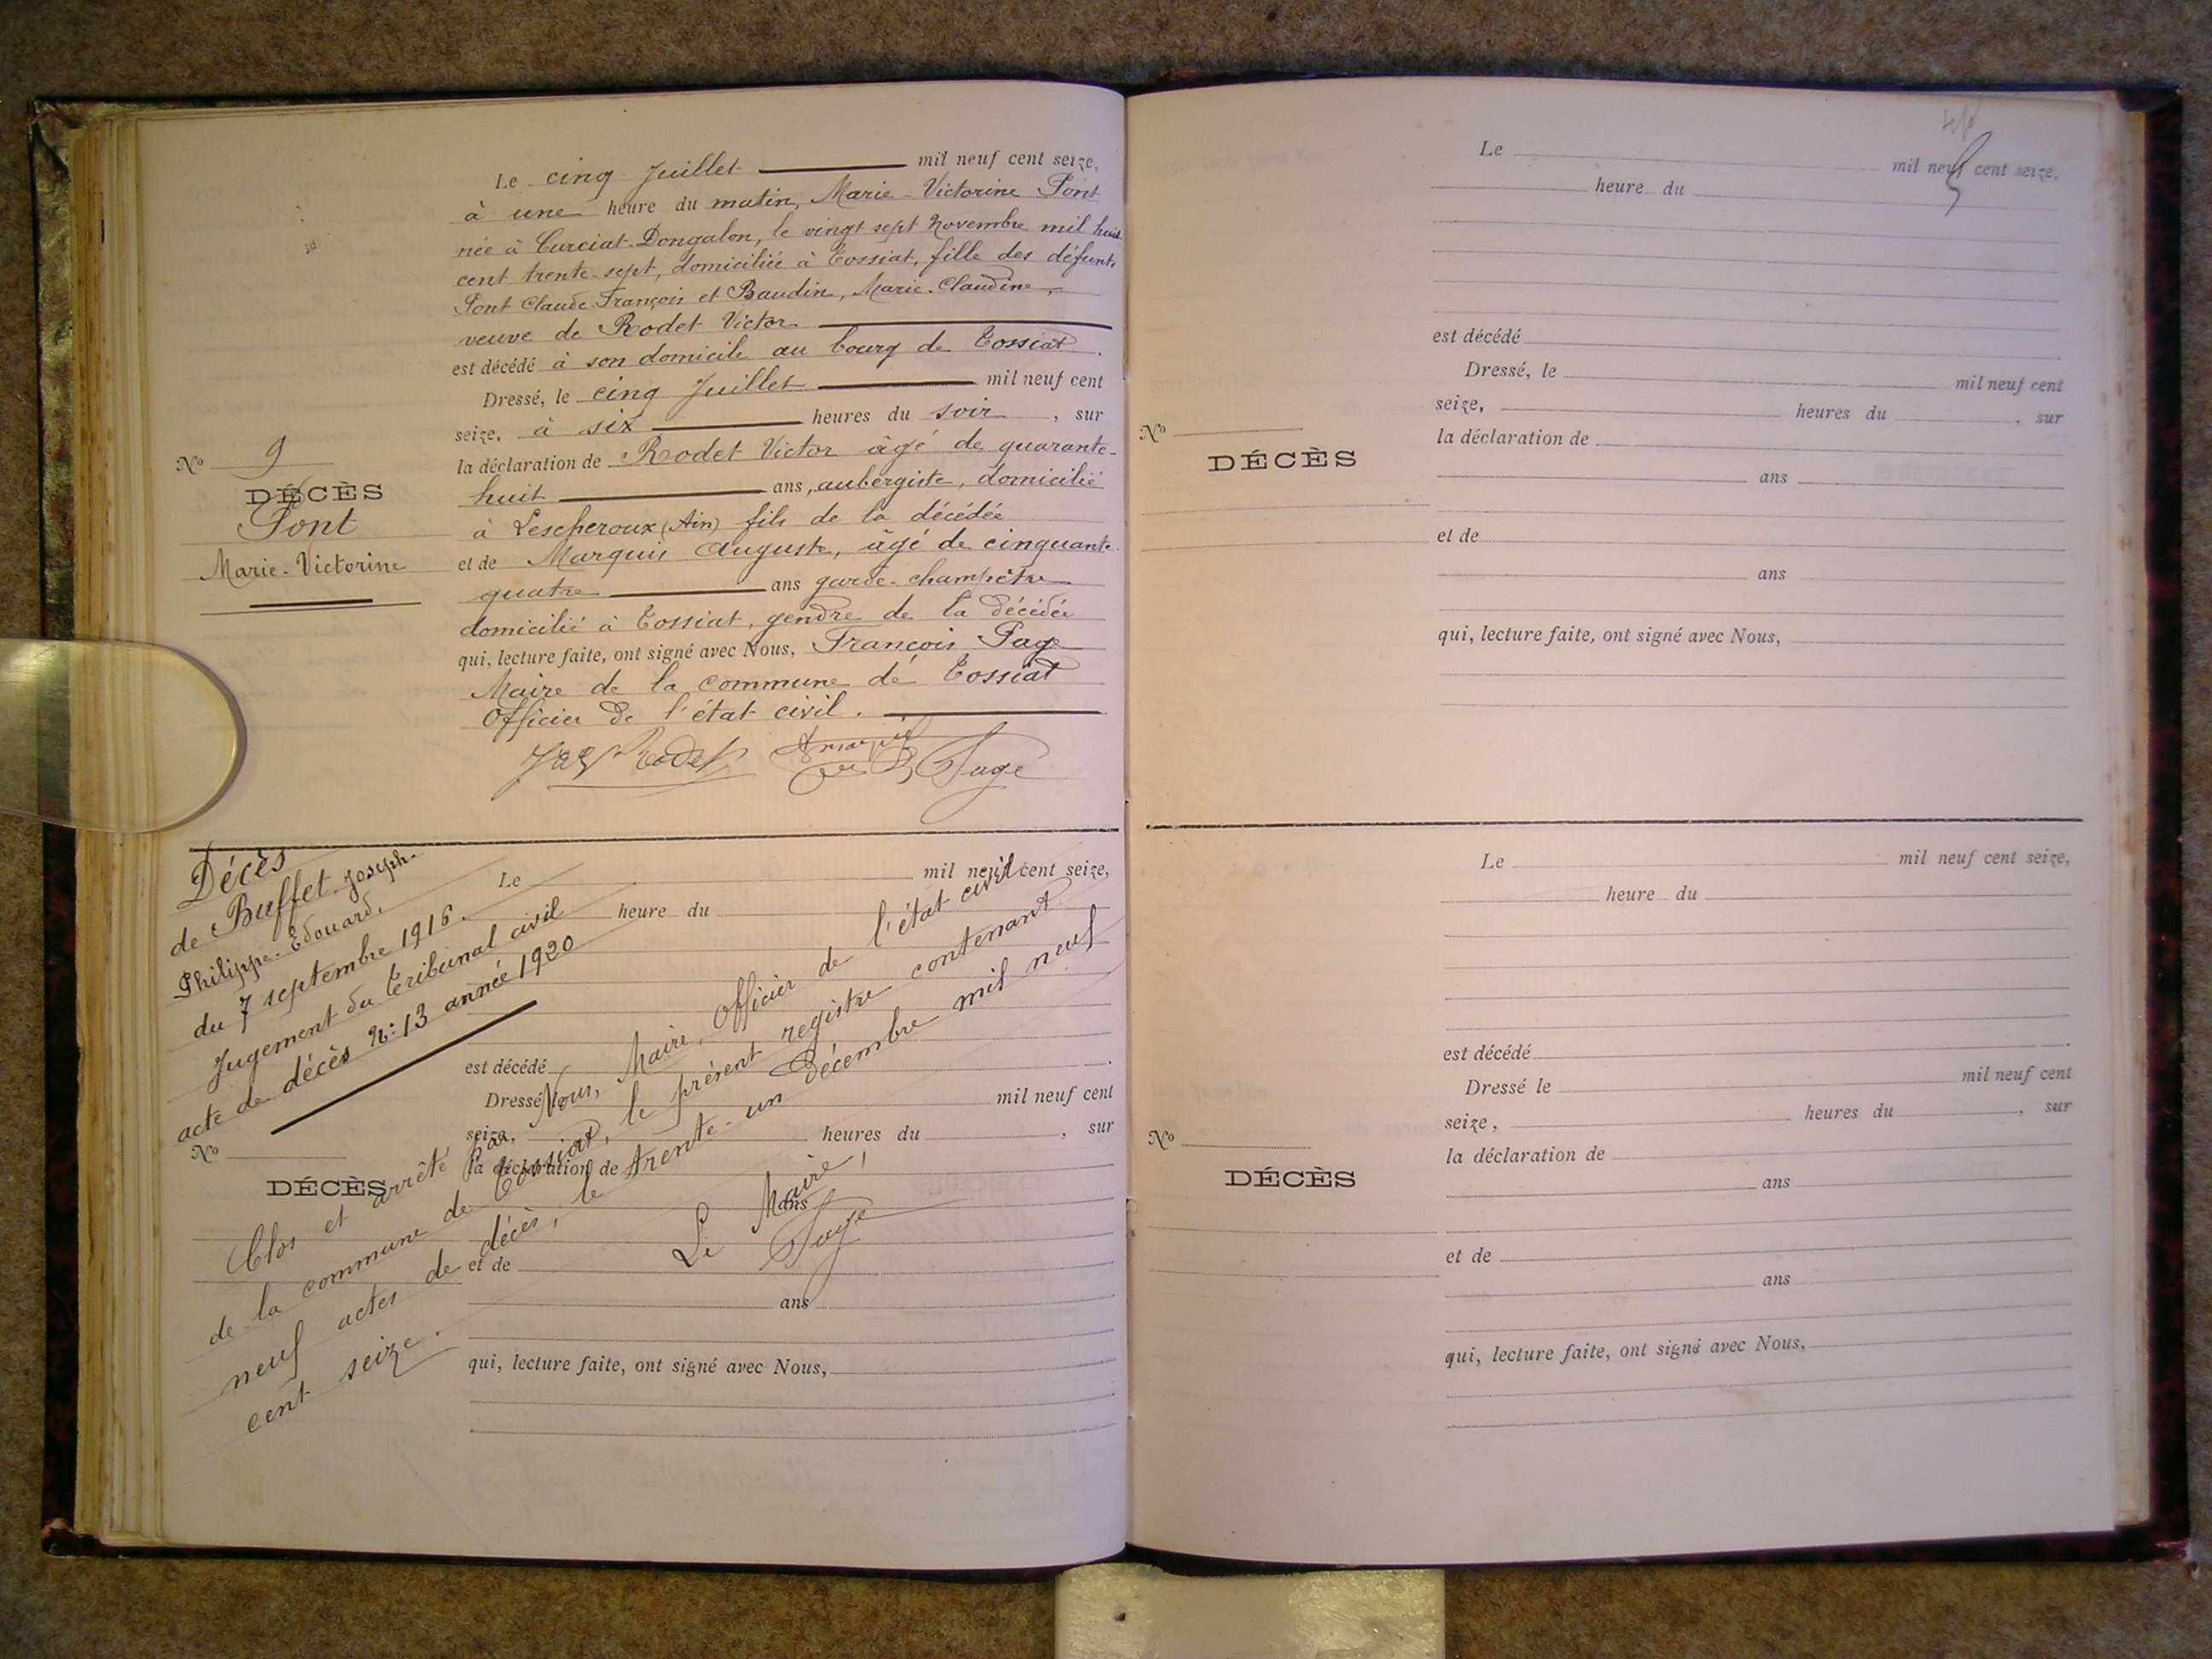 Le cinq Juillet mil neuf cent seize,
à une heure du matin, Marie-Victorine Pont
née à Curciat-Dongalon, le vingt sept Novembre mil huit
cent trente-sept, domiciliée à Tossiat, fille des défunts
Pont Claude François et Baudin, Marie-Claudine,
veuve de Rodet Victor
est décédé à son domicile au bourg de Tossiat.
Dressé, le cinq Juillet mil neuf cent
seize, à six heures du soir, sur
la déclaration de Rodet Victor âgé de quarante-
huit ans, aubergiste, domicilié
à Lescheroux (Ain) fils de la décédée
et de Marquis Auguste, âgé de cinquante
quatre ans garde-champêtre
domicilié à Tossiat, gendre de la décédée
qui, lecture faite, ont signé avec Nous, François Page
Maire de la commune de Tossiat
Officier de l'état civil.
Rodet Page
No 9
DÉCÈS
Pont
Marie-Victorine
Décès
de Buffet Joseph-
Philippe-Edouard.
du 7 septembre 1916.
Jugement du Tribunal civil
acte de décès No: 13 année 1920
Le mil neuf cent seize,
heure du
est décédé
Dressé, le mil neuf cent
seize, heures du , sur
la déclaration de
ans
et de
ans
qui, lecture faite, ont signé avec Nous,
No
DÉCÈS
Clos et arrêté par Nous, Maire, Officier de l'état civil
de la commune de Tossiat, le présent registre contenant
neuf actes de décès, le trente-un Décembre mil neuf
cent seize.
Le Maire,
Page
Le mil neuf cent seize,
heure du
est décédé
Dressé, le mil neuf cent
seize, heures du , sur
No
DÉCÈS
la déclaration de
ans
et de
ans
qui, lecture faite, ont signé avec Nous,
Le mil neuf cent seize,
heure du
est décédé
Dressé le mil neuf cent
seize, heures du , sur
No
DÉCÈS
la déclaration de
ans
et de
ans
qui, lecture faite, ont signé avec Nous,